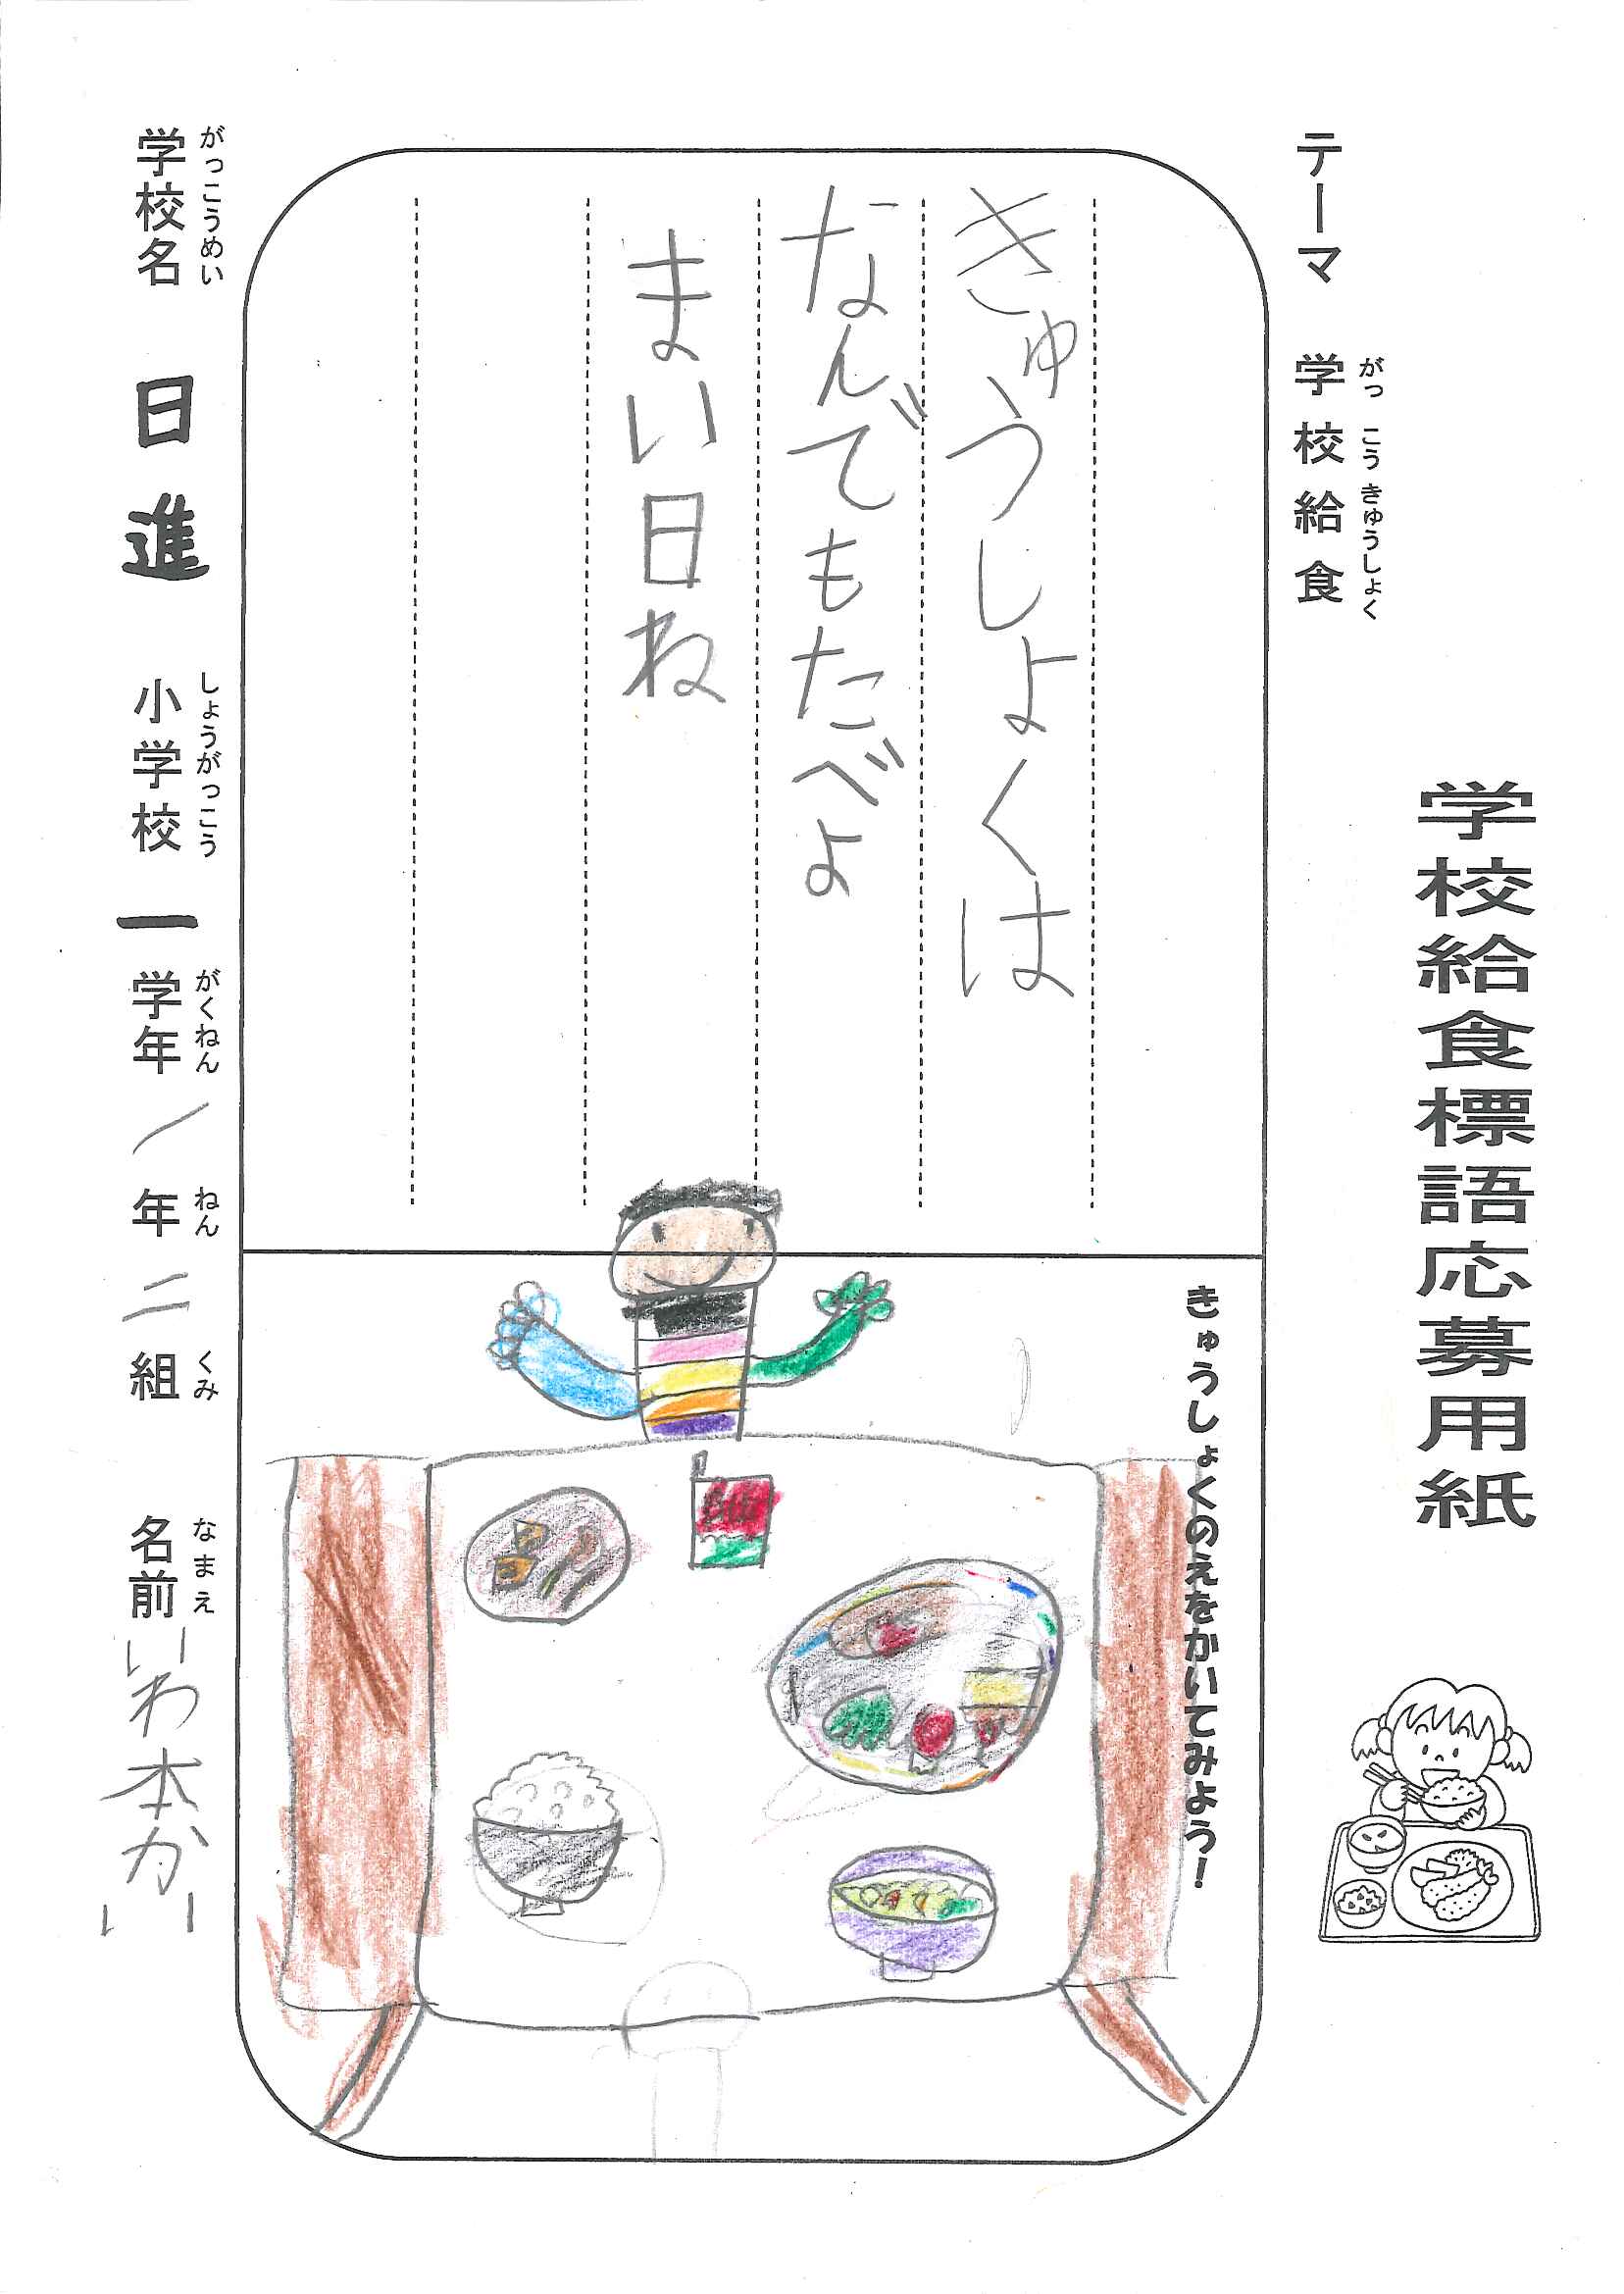 学校給食標語応募用紙
テーマ 学校給食
がっこうきゅうしょく
きゅうしょくは
なんでもたべよ
まい日ね
きゅうしょくのえをかいてみよう！
学校名 日進 小学校 一 学年 1 年 二 組 名前 いわ本かい
がっこうめい しょうがっこう がくねん ねん くみ なまえ